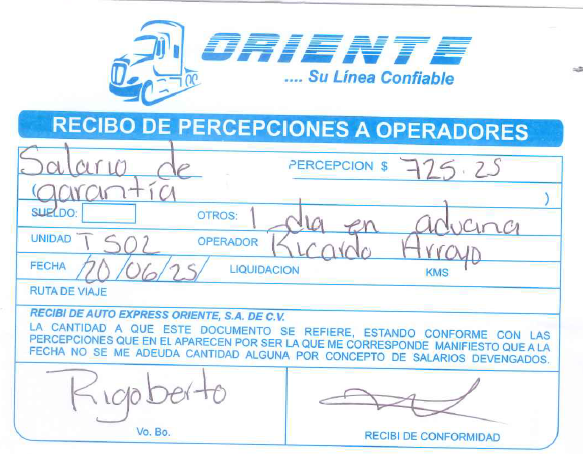 ORIENTE
.... Su Línea Confiable
RECIBO DE PERCEPCIONES A OPERADORES
Salario de PERCEPCION $ 725.25
( garantía )
SUELDO: OTROS: 1 dia en aduana
UNIDAD T 502 OPERADOR Ricardo Arroyo
FECHA /20/06/25/ LIQUIDACION KMS
RUTA DE VIAJE
RECIBI DE AUTO EXPRESS ORIENTE, S.A. DE C.V.
LA CANTIDAD A QUE ESTE DOCUMENTO SE REFIERE, ESTANDO CONFORME CON LAS
PERCEPCIONES QUE EN EL APARECEN POR SER LA QUE ME CORRESPONDE MANIFIESTO QUE A LA
FECHA NO SE ME ADEUDA CANTIDAD ALGUNA POR CONCEPTO DE SALARIOS DEVENGADOS.
Rigoberto
Vo. Bo. RECIBI DE CONFORMIDAD